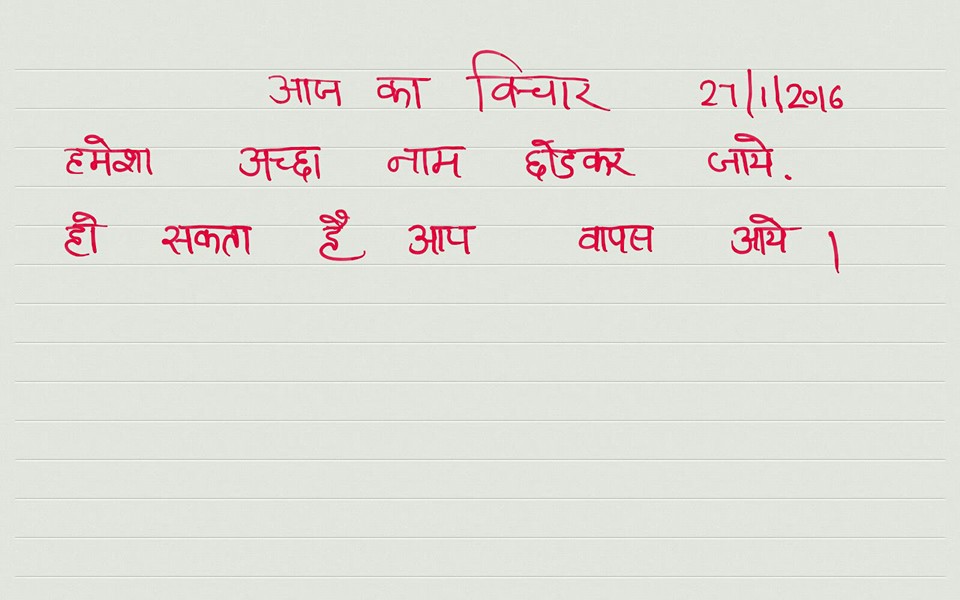 आज का विचार 27/1/2016
हमेशा अच्छा नाम छोडकर जाये.
हो सकता है आप वापस आये।